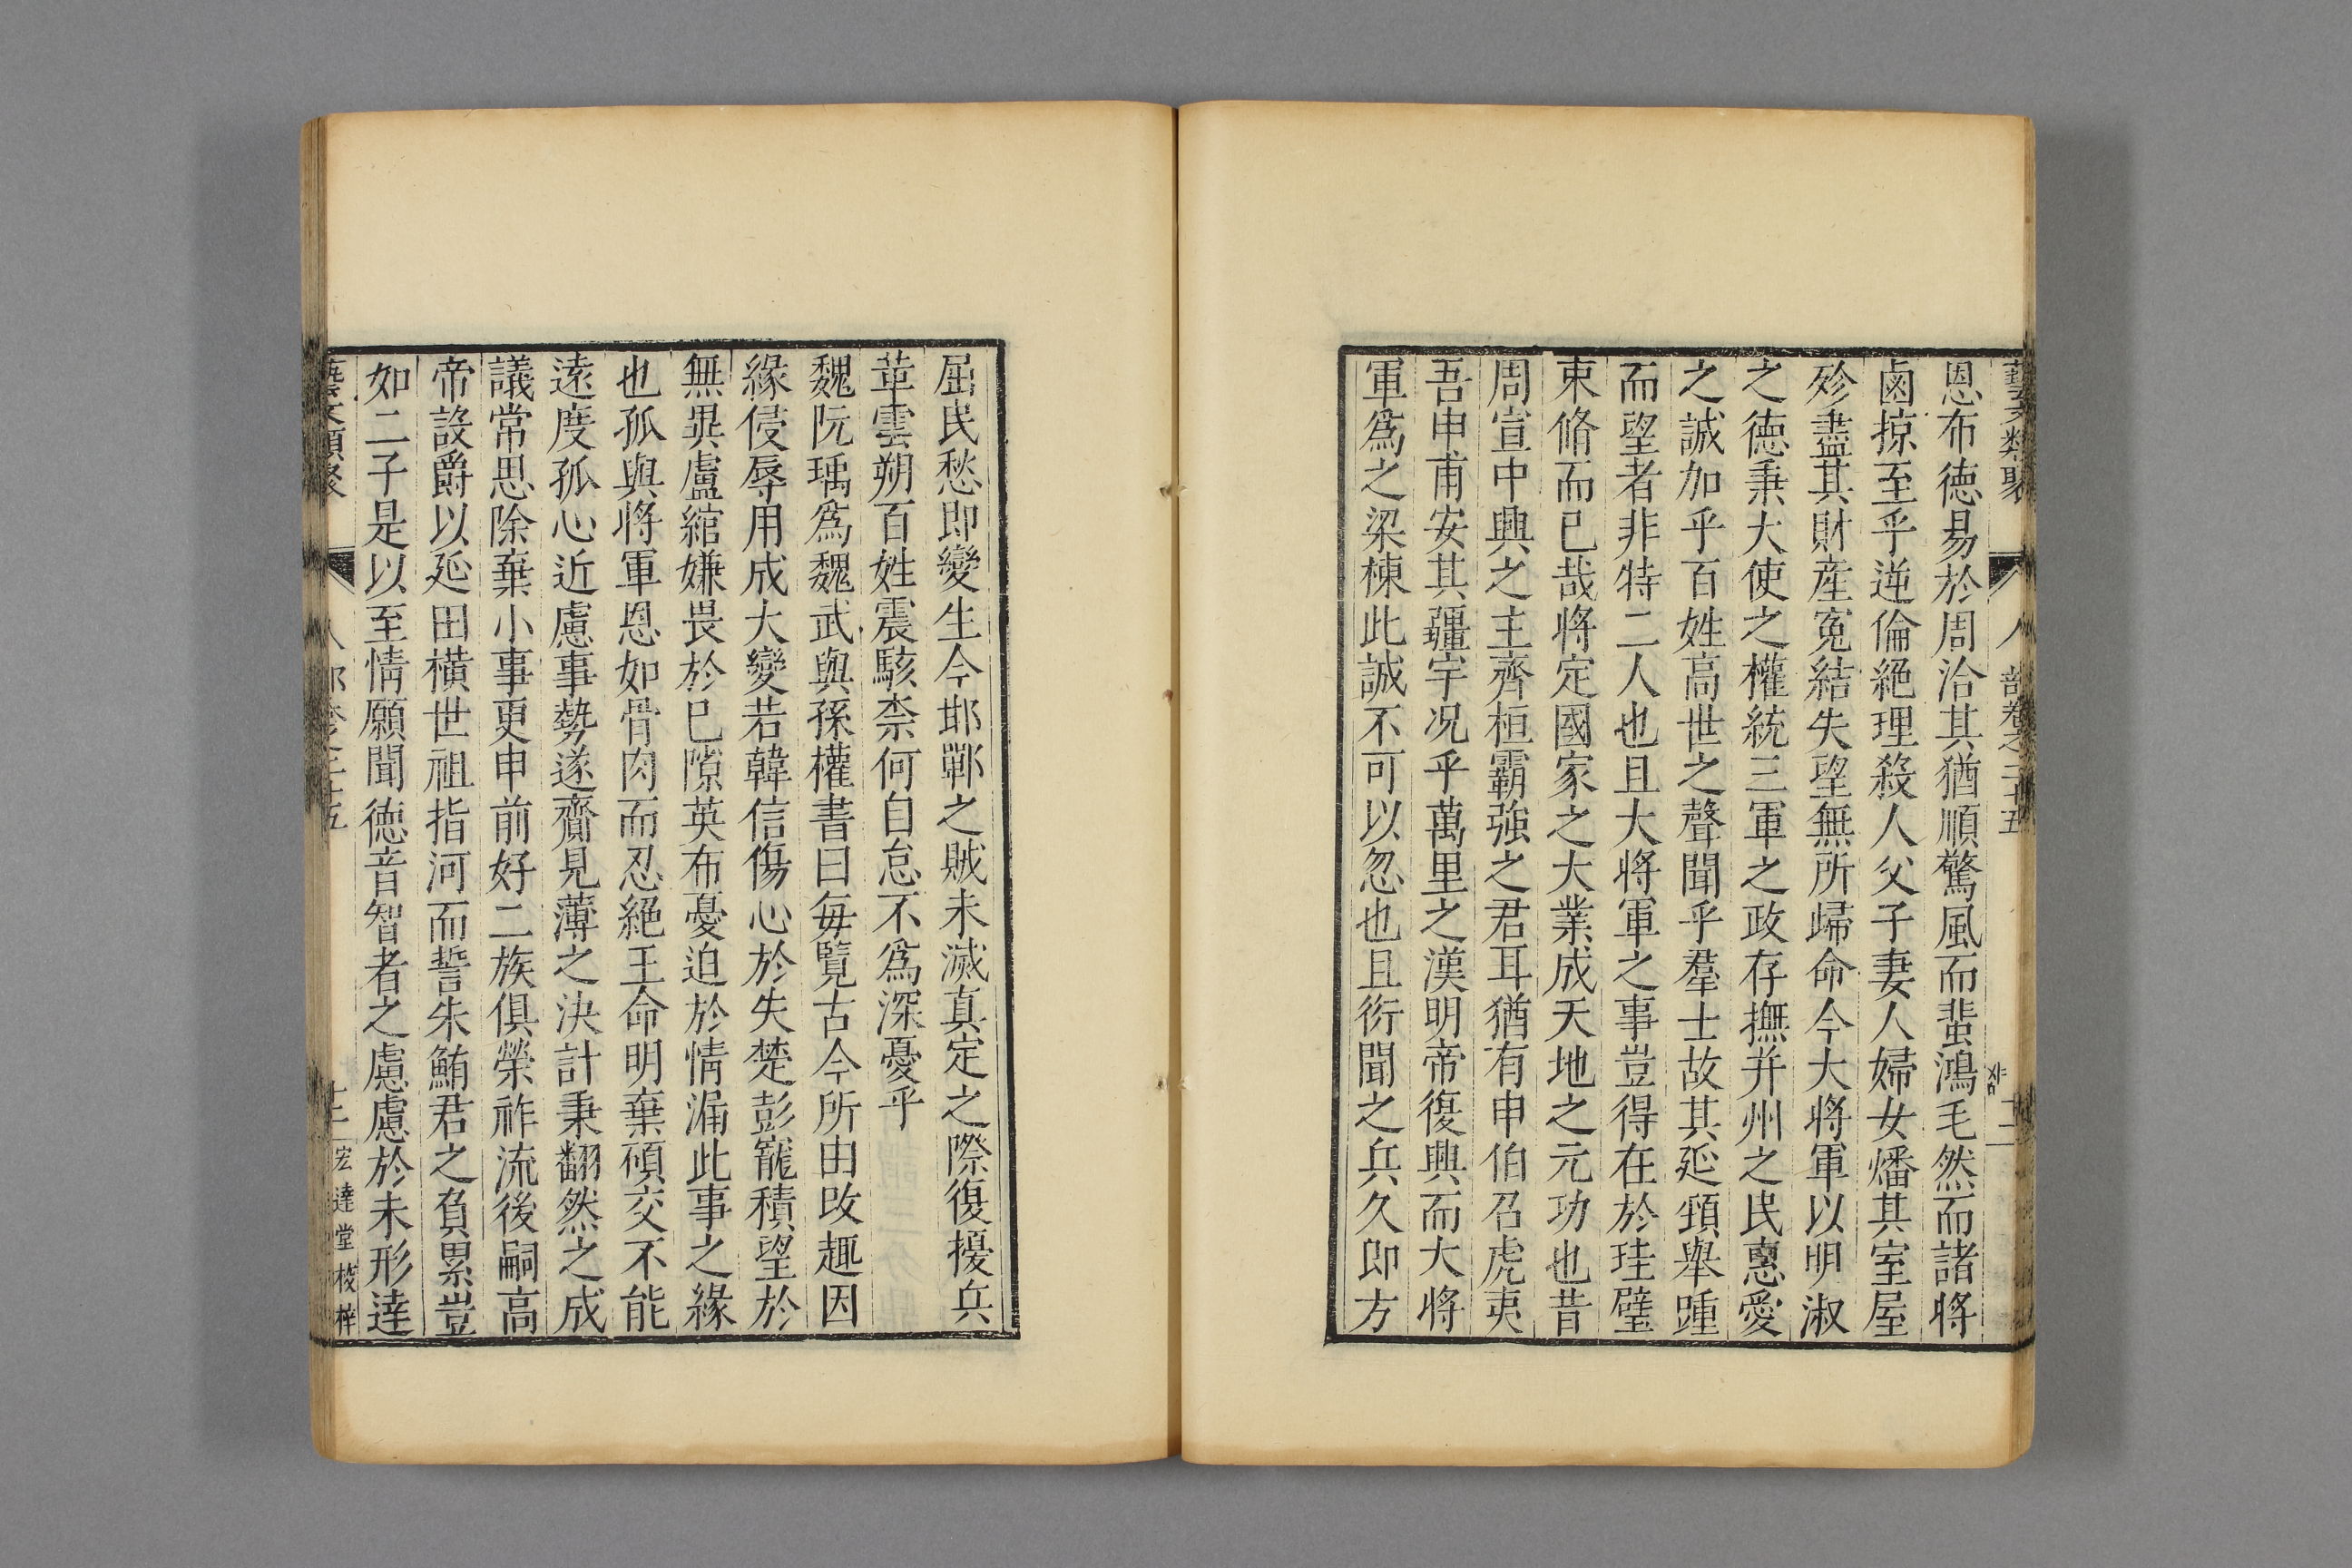 藝文類聚 人部卷之二十五
恩布德易於周洽其猶順驚風而蜚鴻毛然而諸將
鹵掠至乎逆倫絕理殺人父子妻人婦女燔其室屋
殄盡其財産寃結失望無所歸命今大將軍以明淑
之德秉大使之權統三軍之政存撫并州之民惠愛
之誠加乎百姓高世之聲聞乎羣士故其延頸舉踵
而望者非特二人也且大將軍之事豈得在於珪璧
束脩而已哉將定國家之大業成天地之元功也昔
周宣中興之主齊桓霸強之君耳猶有申伯召虎夷
吾申甫安其疆宇况乎萬里之漢明帝復興而大將
軍爲之梁棟此誠不可以忽也且衍聞之兵久即方
屈民愁即變生今邯鄲之賊未滅真定之際復擾兵
革雲朔百姓震駭柰何自怠不爲深憂乎
魏阮瑀爲魏武與孫權書曰每覽古今所由改趣因
緣侵辱用成大變若韓信傷心於失楚彭寵積望於
無異盧綰嫌畏於已隙英布憂迫於情漏此事之緣
也孤與將軍恩如骨肉而忍絕王命明棄碩交不能
遠度孤心近慮事勢遂齎見薄之決計秉翻然之成
議常思除棄小事更申前好二族俱榮祚流後嗣高
帝設爵以延田橫世祖指河而誓朱鮪君之負累豈
如二子是以至情願聞德音智者之慮慮於未形達
藝文類聚 人部卷之二十五 十二 宏達堂校梓